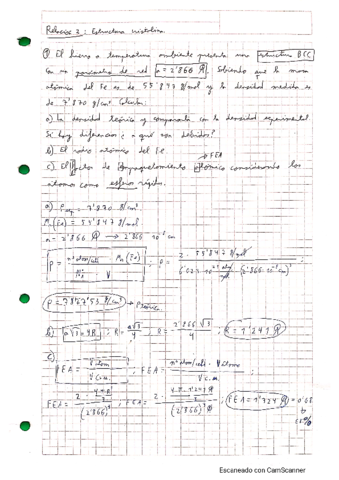 Relación 2: Estructura cristalina
① El hierro a temperatura ambiente presenta una estructura BCC
con un parámetro de red a = 2'866 Å. Sabiendo que la masa
atómica del Fe es de 55'847 g/mol y la densidad medida es
de 7'870 g/cm³. Calcular:
a) La densidad teórica y compararla con la densidad experimental.
Si hay diferencias ¿a qué son debidas?
b) El radio atómico del Fe.
→ FEA
c) El factor de empaquetamiento atómico considerando los
átomos como esferas rígidas.
a) ρexp = 7'870 g/cm³
Mm(Fe) = 55'847 g/mol
a = 2'866 Å → 2'866 · 10⁻⁸ cm
ρ = nº átom/celd · Mm(Fe) / V ; ρ = 2 · 55'847 g/mol / 6'023 · 10²³ · (2'866 · 10⁻⁸ cm)³ ;
ρ = 7'8775 g/cm³ → ρ teórica
b) a√3 = 4R ; R = a√3 / 4 R = 2'866 √3 / 4 ; R = 1'241 Å
c)
FEA = V átom / V c.u. ; FEA = nº átom/celd · V átomo / V c.u. ;
FEA = / (2'866)³ ; FEA = / (2'866)³ ; = 0'68
68%
Escaneado con CamScanner